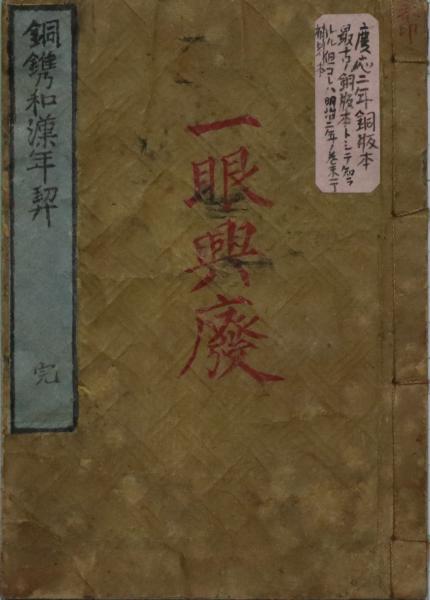 慶応二年銅版本
最古ノ銅版本トシテ知ラ
レル但コレハ明治二年ノ巻末ニテ
補刻本
一眼興廢
銅鐫和漢年契
完